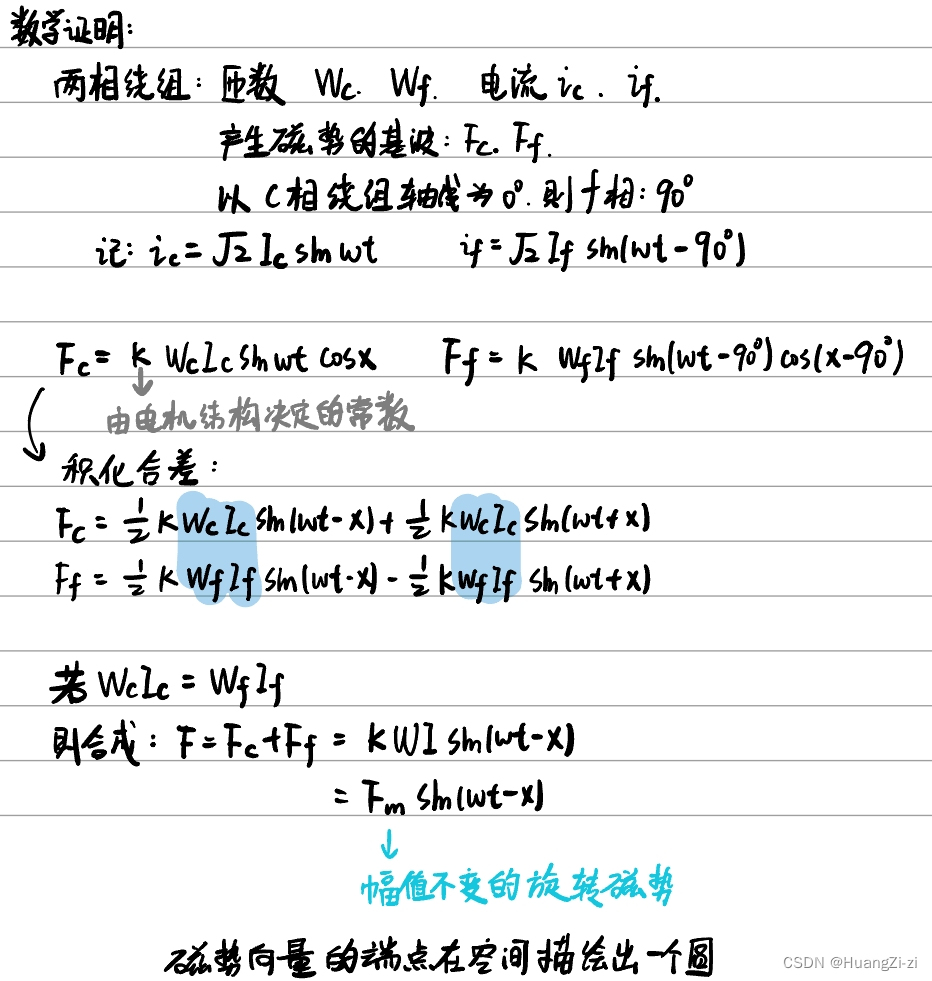 数学证明:
两相绕组: 匝数 Wc. Wf. 电流 ic. if.
产生磁势的基波: Fc. Ff.
以 C相绕组轴线为 0°. 则 f相: 90°
记: ic = √2 Ic sin wt if = √2 If sin(wt - 90°)
Fc = K WcIc sin wt cosx Ff = K WfIf sin(wt-90°) cos(x-90°)
由电机结构决定的常数
积化合差:
Fc = 1/2 K WcIc sin(wt-x) + 1/2 K WcIc sin(wt+x)
Ff = 1/2 K WfIf sin(wt-x) - 1/2 K WfIf sin(wt+x)
若 WcIc = WfIf
则合成: F = Fc + Ff = KWI sin(wt-x)
= Fm sin(wt-x)
幅值不变的旋转磁势
磁势向量的端点在空间描绘出一个圆
CSDN @HuangZi-zi